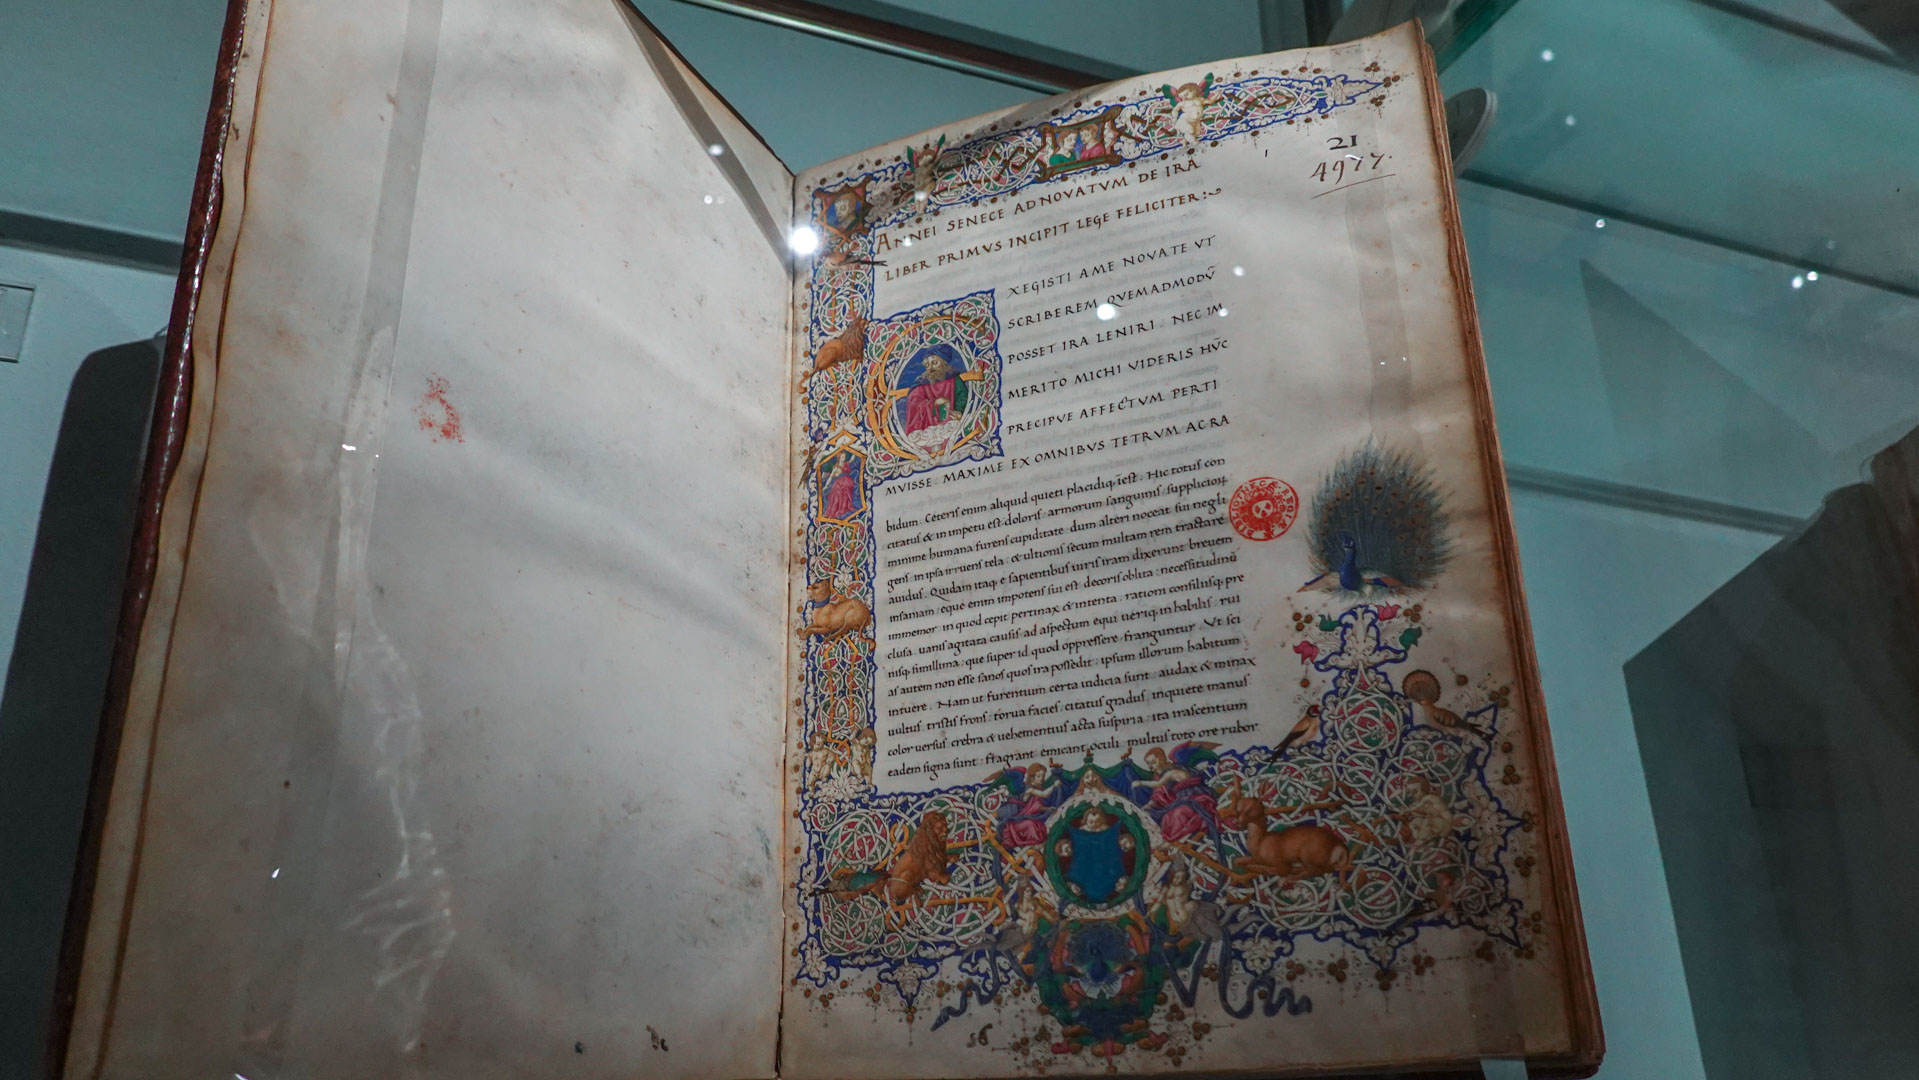 21
4977.
ANNEI SENECE AD NOVATVM DE IRA
LIBER PRIMVS INCIPIT LEGE FELICITER:
EXEGISTI A ME NOVATE VT
SCRIBEREM QVEMADMODV̄
POSSET IRA LENIRI: NEC IM
MERITO MICHI VIDERIS HV̄C
PRECIPVE AFFECTVM PERTI
MVISSE: MAXIME EX OMNIBVS TETRVM AC RA
bidum. Ceteris enim aliquid quieti placidiq; īest. Hic totus con
citatus & in impetu est doloris: armorum sanguinis: suppliciorꝝ
minime humana furens cupiditate. dum alteri noceat sui negli
gens: in ipsa irruens tela: & ultionis secum multam rem tractare
auidus. Quidam itaq; e sapientibus uiris iram dixerunt breuem
insaniam: eque enim impotens sui est: decoris oblita: necessitudinū
immemor: in quod cepit pertinax & intenta: rationi consiliisq; pre
clusa: uanis agitata causis: ad aspectum equi ueriq; in habilis: rui
nisq; simillima: que super id quod oppressere franguntur. Vt sci
as autem non esse sanos quos ira possedit: ipsum illorum habitum
intuere. Nam ut furentium certa indicia sunt: audax & minax
uultus: tristis frons: torua facies: citatus gradus: inquiete manus
color uersus: crebra & uehementius acta suspiria: ita irascentium
eadem signa sunt: flagrant emicant oculi: multus toto ore rubor
56